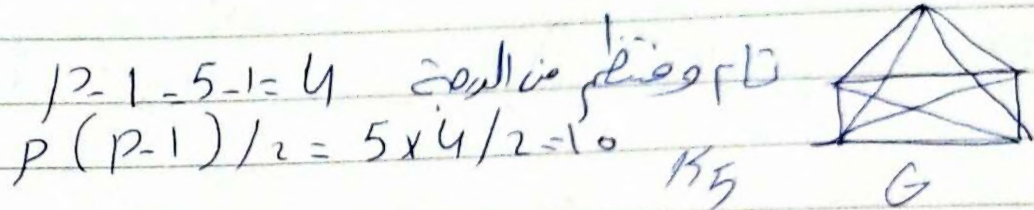 تام ومنتظم من الدرجة P-1=5-1=4
P(P-1)/2=5x4/2=10
K5
G